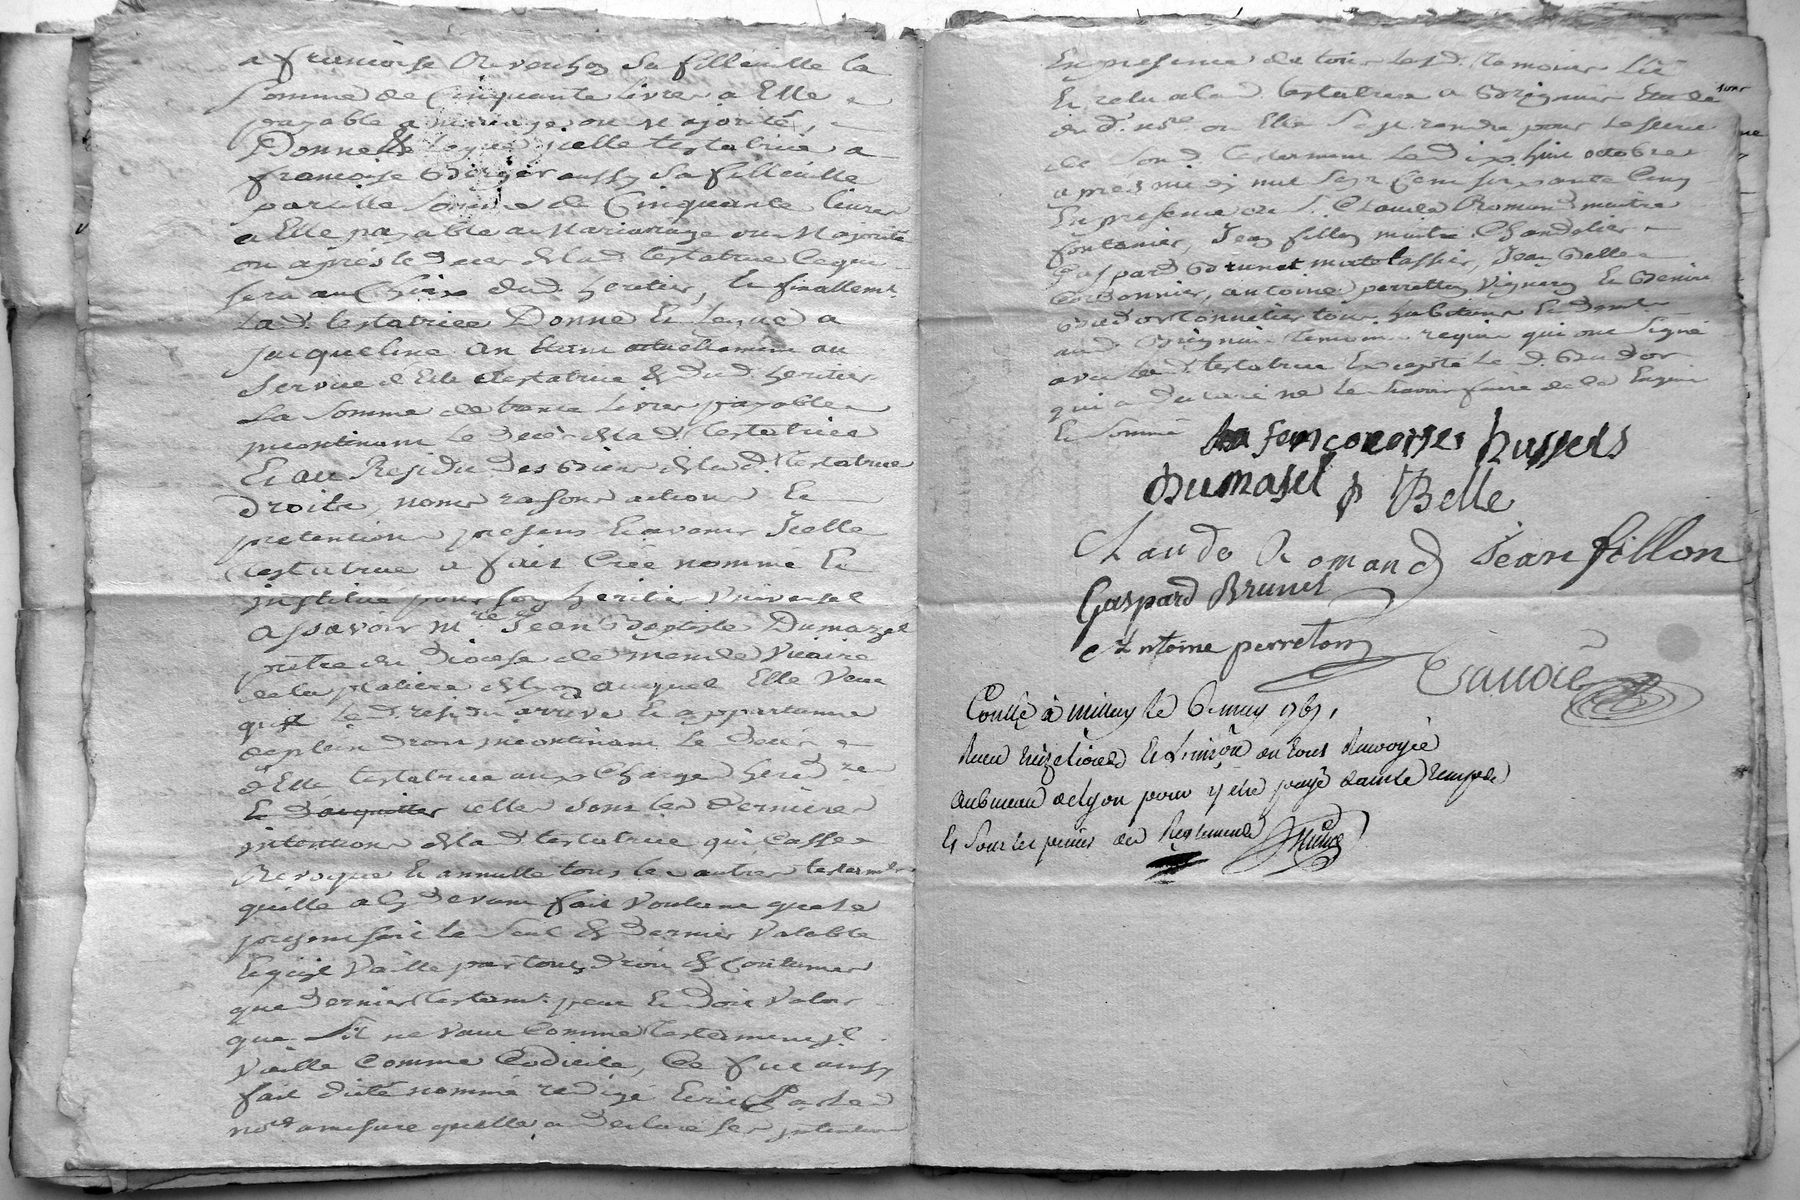 a francoise Reverchon sa filleuille la
somme de Cinquante livres a Elle
payable a mariage ou majorité,
Donne & Legue icelle testatrice a
francoise Berger aussy sa filleuille
pareille somme de Cinquante livres
a Elle payable a Mariaiage ou Majorité
ou apres le deces de lad. testatrice Ce qui
sera au Choix dud. heritier, Et finallemt.
Lad. testatrice Donne Et Legue a
jacqueline An Etant actuellement au
service d'Elle testatrice & dud. heritier
La somme de trente livres payable
incontinant le deces de lad. testatrice
Et au Residu des Biens de lad. testatrice
droits, noms raisons actions Et
pretentions presens Et avenir Icelle
testatrice a fait Créé nommé Et
institué pour son heritier Universel
Assavoir mre. Jean Baptiste Dumazel
prêtre du Diocese de mende Vicaire
de la platiere de Lyon auquel Elle Veut
que led. residu arrive Et appartienne
de plein droit incontinant le deces
d'Elle testatrice aux Charges hered.res
Et d'acquitter celles sont les dernieres
intentions de lad. testatrice qui Casse
Revoque Et annulle tous les autres testamts.
quelle a Cy devant fait Voulant que le
present soit le seul & dernier Valable
Et quil Vaille par tous droits & Coutumes
que dernier testamt. peut Et doit Valoir
que Sil ne Vaut Comme testament il
Vaille Comme Codicile, Ce fut ainsy
fait dicté nommé redigé Ecrit par led.
nore. a mesure quelle a declaré ses intentions
En presence de tous lesd. temoins Lû
Et relu a lad. testatrice a Brignais Etude
du d. nre. ou Elle sest rendue pour
de sond. testament le dix huit octobre
apres midy mil sept Cent soixante Cinq
En presence de S. Claude Romand maitre
fontanier, Jean fillon maitre Chandelier
Gaspard Brunet matelassier, Jean Belle
Cordonnier, antoine perretton Vigneron Et Benoit
Beudor Connêtier tous habitants Et demt.
aud. Brignais temoins requis qui ont signé
avec lad. testatrice Excepté led. Beudor
qui a declaré ne le scavoir faire de ce Enquis
Et sommé
francoise
Dumasel Belle
Claude Romand Jean fillon
Gaspard Brunet
Antoine perreton
Conllé à millery le 6. may 1767,
Renvoyé
au bureau de Lyon pour y etre payé dans le temps
Et sous les peines des Reglements